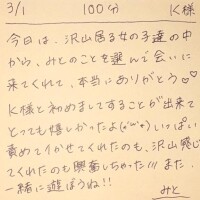 3/1 100分 K様
今日は、沢山居る女の子達の中
から、みとのことを選んで会いに
来てくれて、本当にありがとう♡♡
K様と初めましてすることが出来て
とっても嬉しかったよ(๑'ᵕ'๑)いっぱい
責めてイかせてくれたのも、沢山感じ
てくれたのも興奮しちゃった!!!また
一緒に遊ぼうね!!
みと